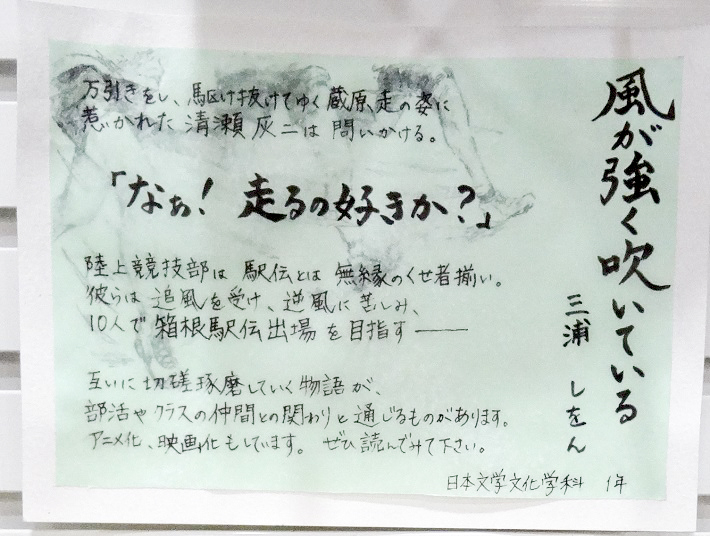 風が強く吹いている
三浦 しをん
万引きをし、駆け抜けてゆく蔵原走の姿に
惹かれた清瀬灰二は問いかける。
「なぁ! 走るの好きか?」
陸上競技部は駅伝とは無縁のくせ者揃い。
彼らは追風を受け、逆風に苦しみ、
10人で箱根駅伝出場を目指す――
互いに切磋琢磨していく物語が、
部活やクラスの仲間との関わりと通じるものがあります。
アニメ化、映画化もしています。ぜひ読んでみて下さい。
日本文学文化学科 1年